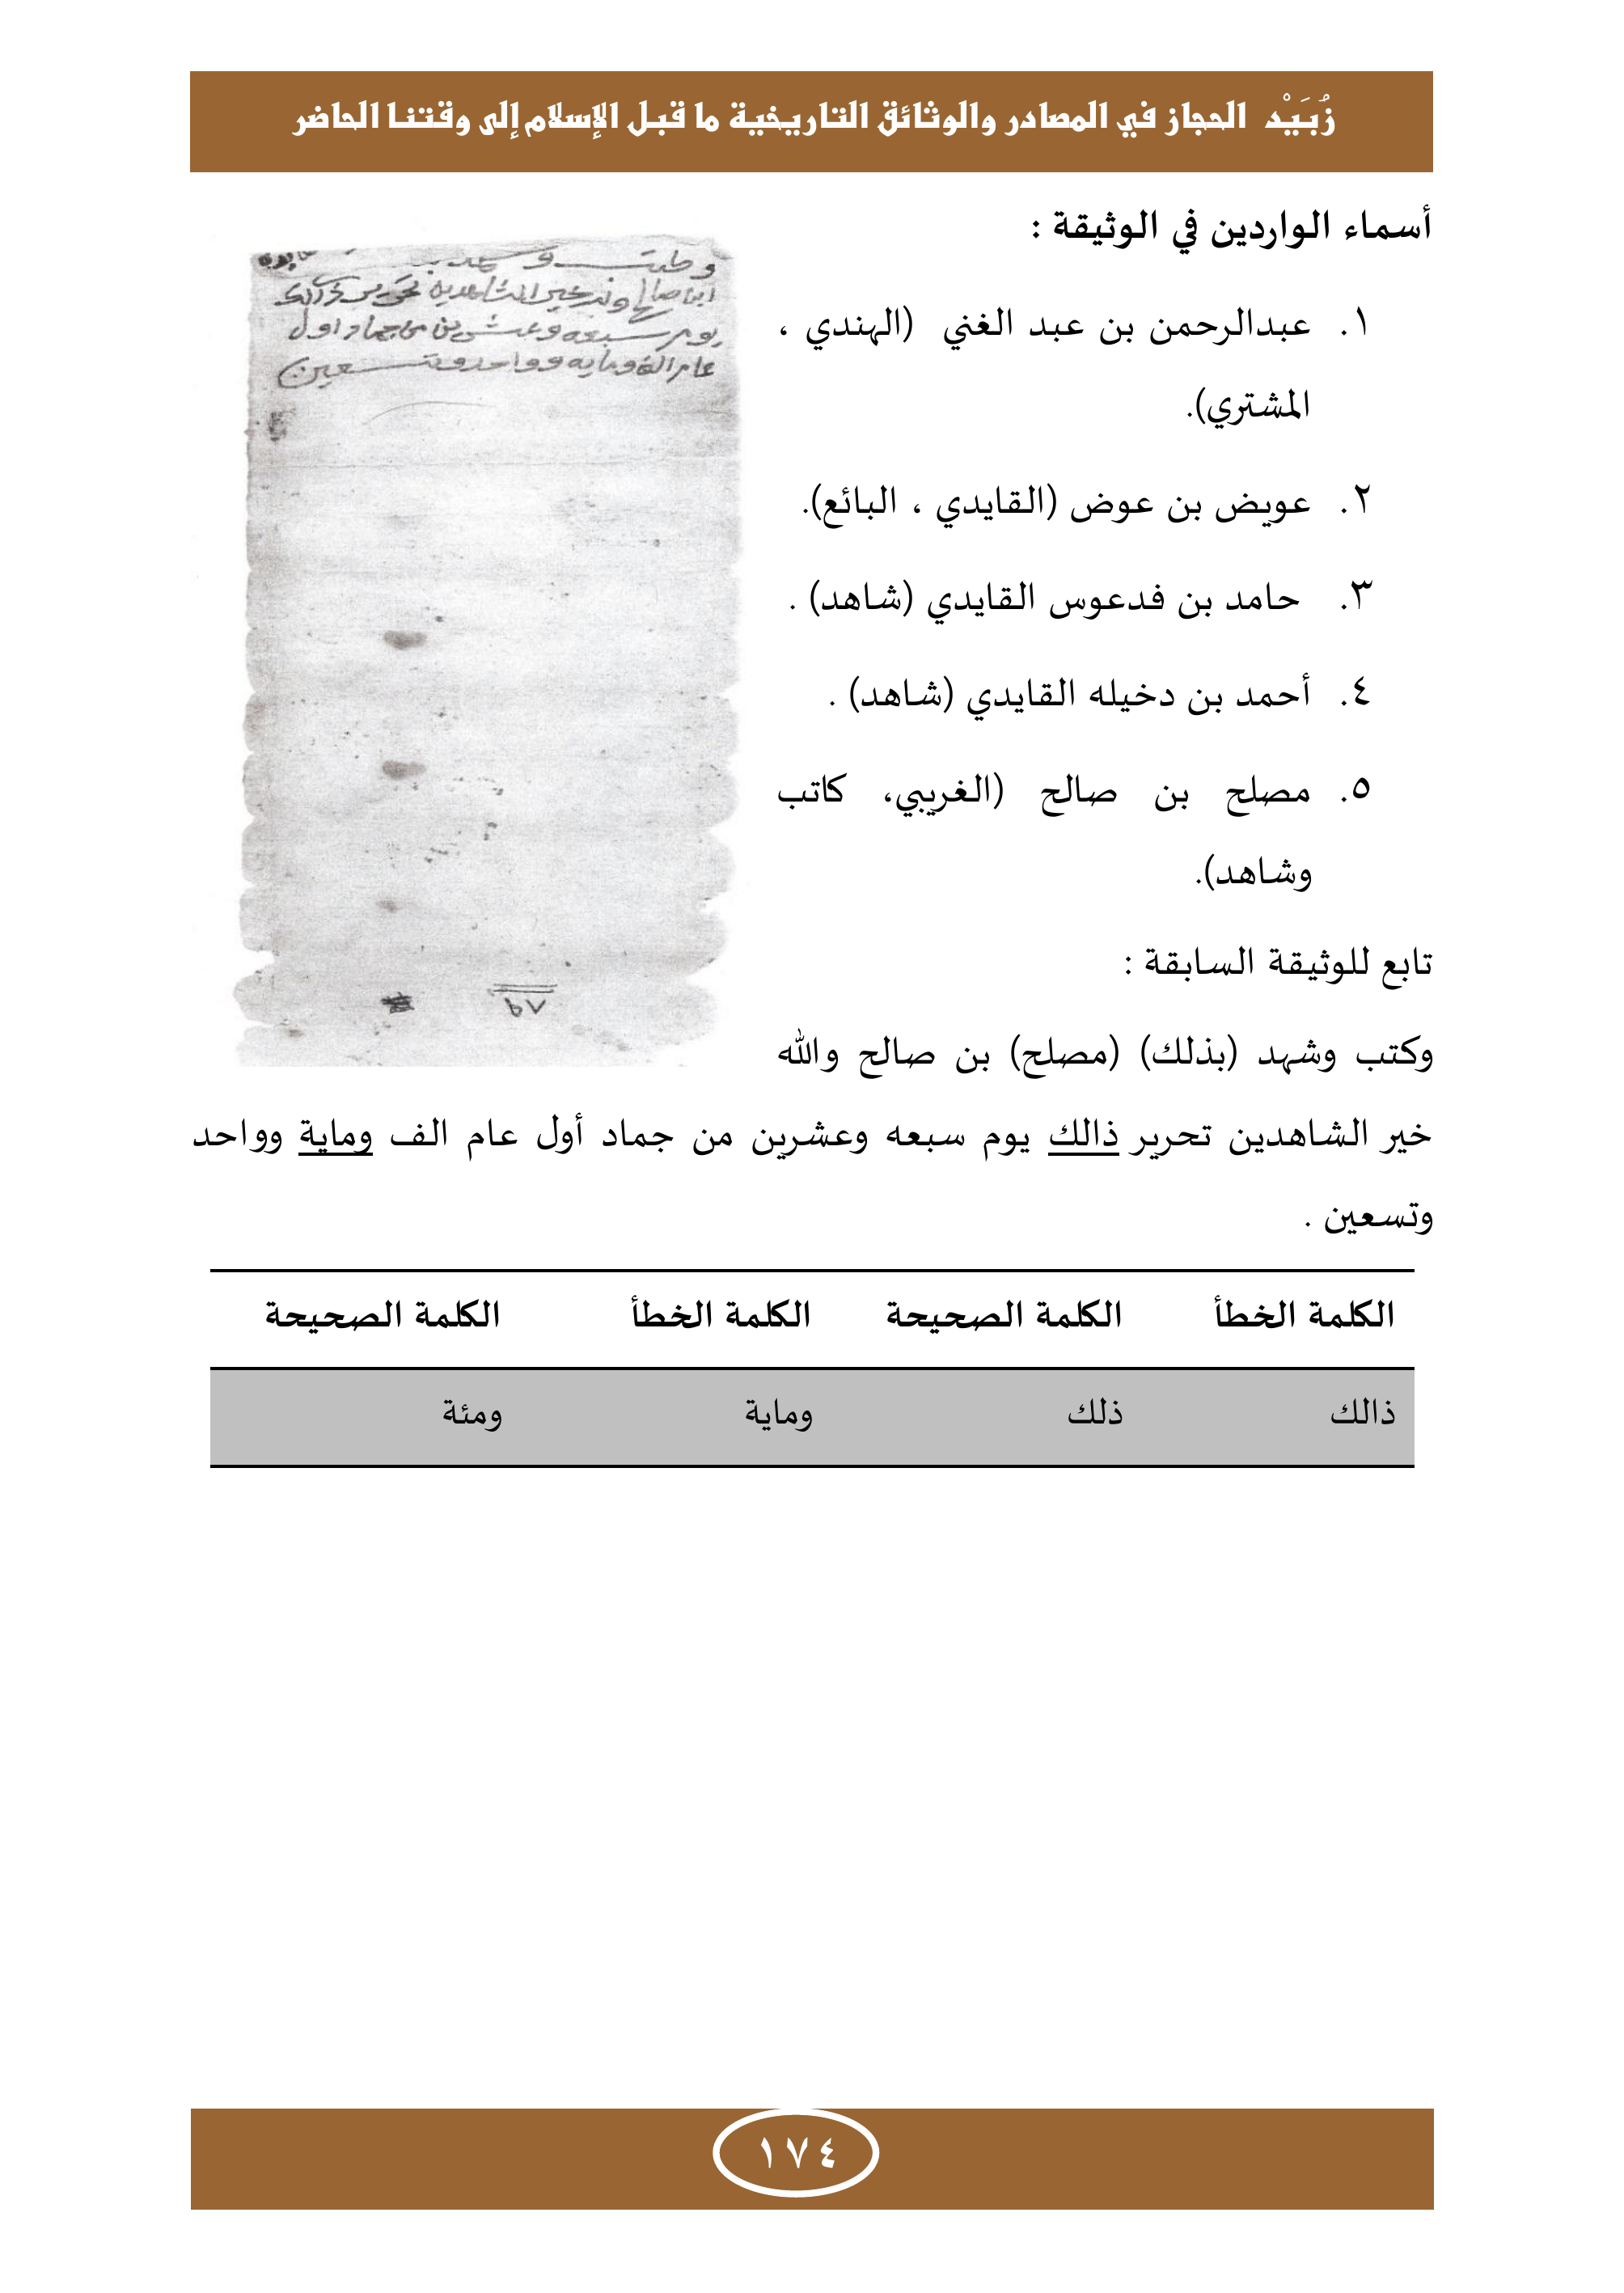 زُبَيْد الحجاز في المصادر والوثائق التاريخية ما قبل الإسلام إلى وقتنا الحاضر
أسماء الواردين في الوثيقة :
١. عبدالرحمن بن عبد الغني (الهندي ،
المشتري).
٢. عويض بن عوض (القايدي ، البائع).
٣. حامد بن فدعوس القايدي (شاهد) .
٤. أحمد بن دخيله القايدي (شاهد) .
٥. مصلح بن صالح (الغريبي، كاتب
وشاهد).
تابع للوثيقة السابقة :
وكتب وشهد (بذلك) (مصلح) بن صالح والله
خير الشاهدين تحرير ذالك يوم سبعه وعشرين من جماد أول عام الف وماية وواحد
وتسعين .
وكتب وشهد
ابن صالح والله خير الشاهدين تحرير ذالك
يوم سبعه وعشرين من جماد اول
عام الف ومايه وواحد وتسعين
الكلمة الخطأ الكلمة الصحيحة الكلمة الخطأ الكلمة الصحيحة
ذالك ذلك وماية ومئة
١٧٤